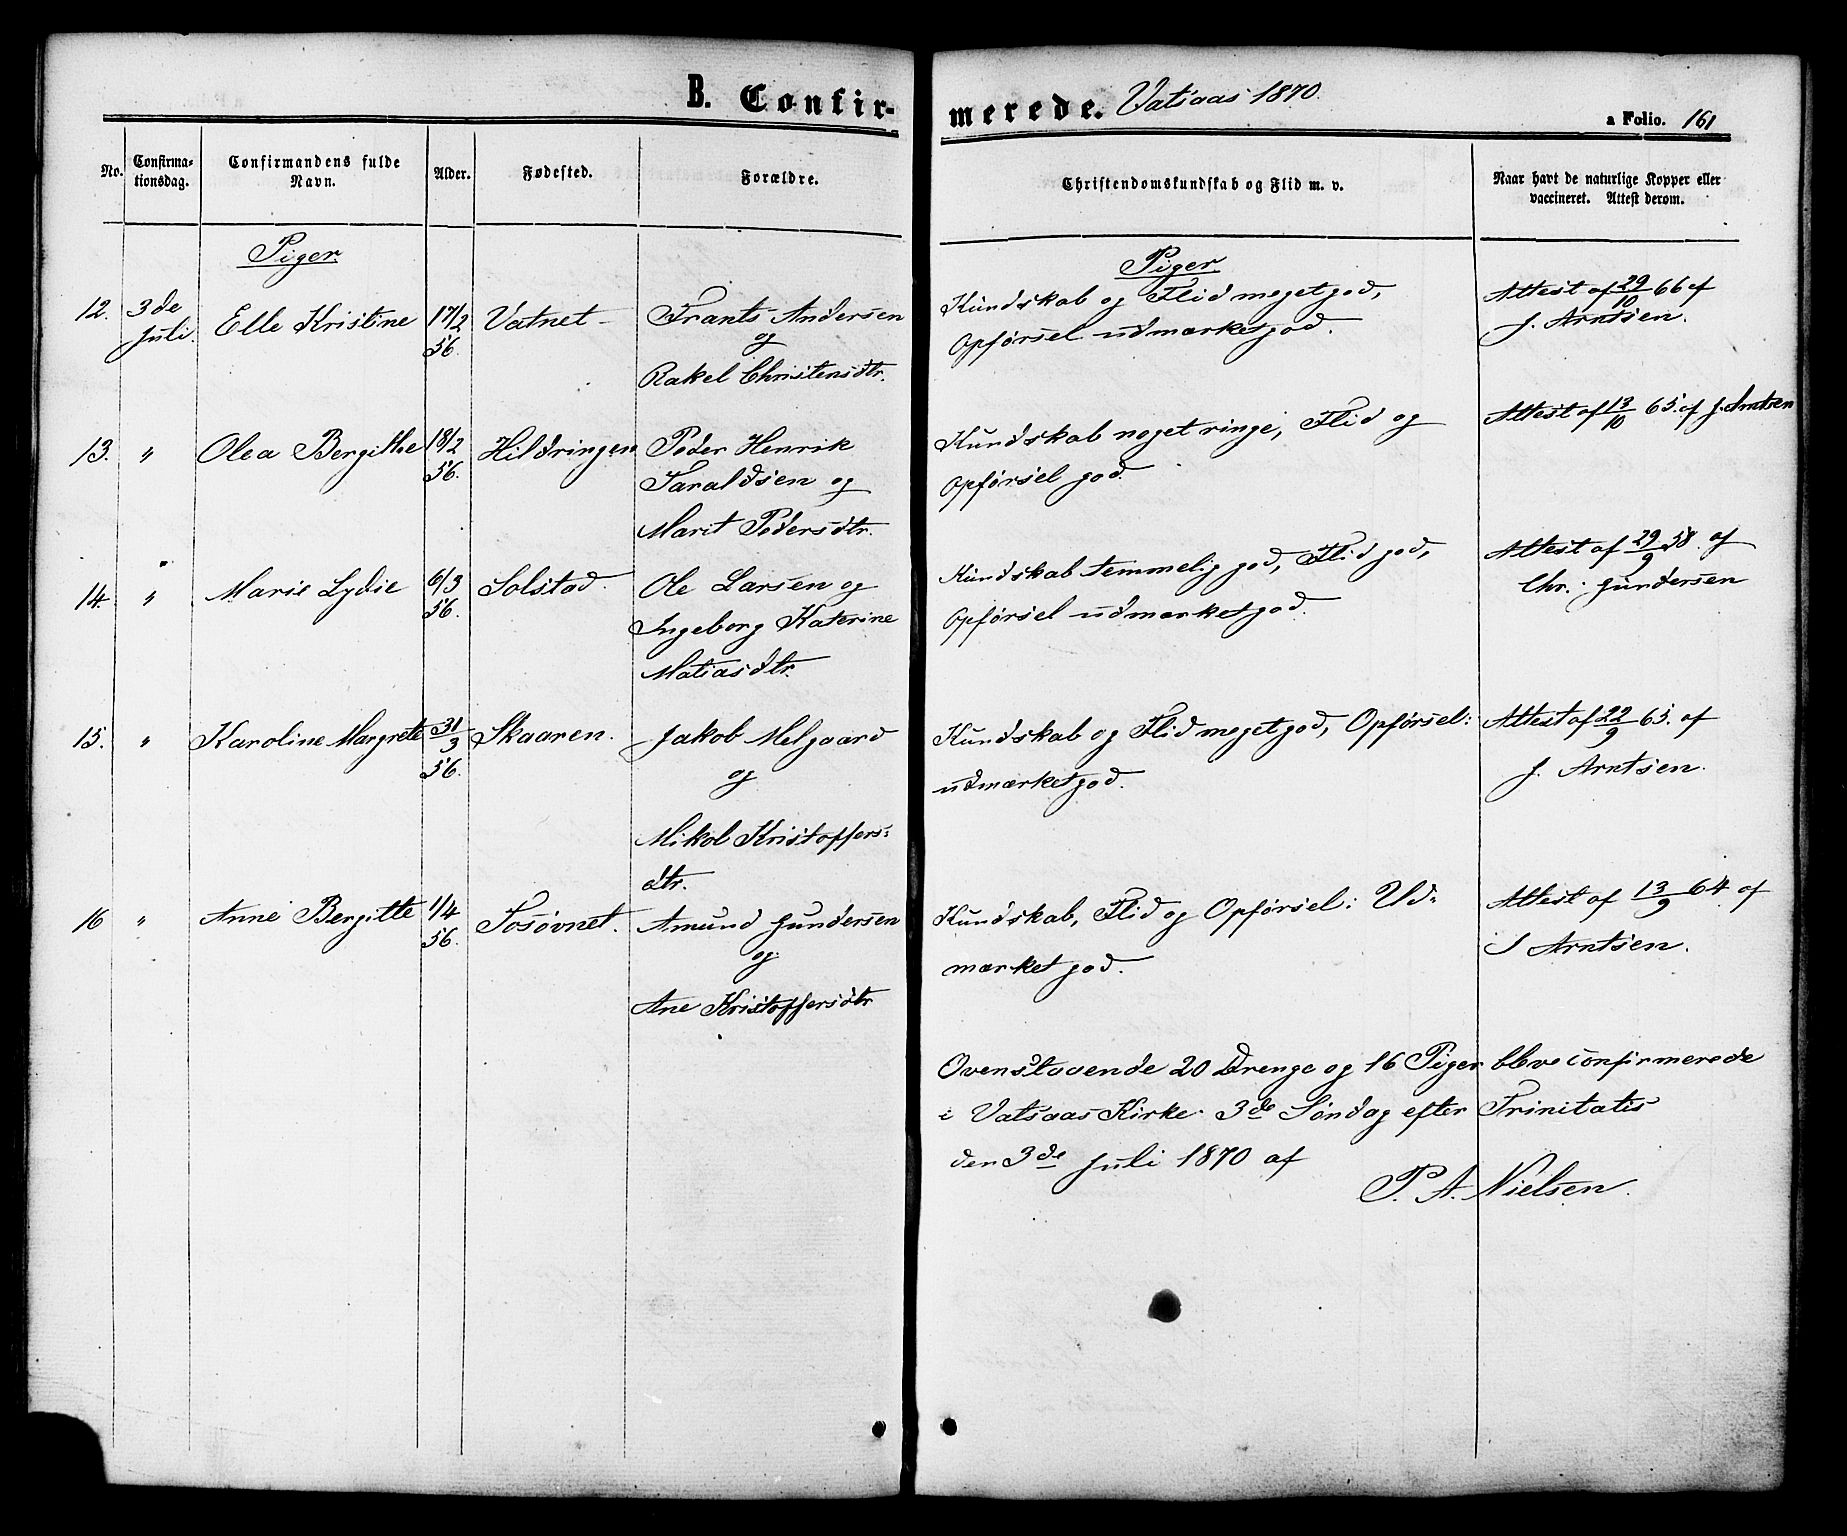 B. Confir-
merede. Vatsaas 1870.
a Folio. 161
No.
Confirma-
tionsdag.
Confirmandens fulde
Navn.
Alder.
Fødested.
Forældre.
Christendomskundskab og Flid m. v.
Naar havt de naturlige Kopper eller
vaccineret. Attest derom.
Piger
Piger
12. 3de
Juli.
Elle Kristine
17/2
56.
Vatnet
Frants Andersen
og
Rakel Christensdtr.
Kundskab og Flid meget god,
Opførsel udmærket god.
Attest af 29/10 66 af
J. Arntsen.
13. "
Olea Bergitte
18/2
56.
Hildringen
Peder Henrik
Taraldsen og
Marit Pedersdtr.
Kundskab noget ringe, Flid og
Opførsel god.
Attest af 13/10 65. af J. Arntsen
14. "
Marie Lydie
6/3
56.
Solstad
Ole Larsen og
Ingeborg Katerine
Matiasdtr.
Kundskab temmelig god, Flid god,
Opførsel udmærket god.
Attest af 29/9 58. af
Chr. Gundersen
15. "
Karoline Margrete
31/3
56.
Skaaren.
Jakob Melgaard
og
Mikol Kristoffers=
dtr.
Kundskab og Flid meget god, Opførsel:
udmærket god.
Attest af 22/9 65. af
J. Arntsen.
16 "
Anne Bergitte
1/4
56.
Sosøvnet.
Amund Gundersen
og
Ane Kristoffersdtr
Kundskab, Flid og Opførsel: Ud=
mærket god.
Attest af 13/9 64. af
J Arntsen.
Ovenstaaende 20 Drenge og 16 Piger bleve confirmerede
i Vatsaas Kirke 3de Søndag efter Trinitatis
den 3de Juli 1870 af
P. A. Nielsen.